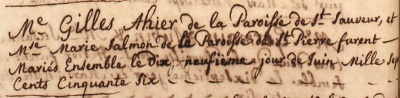 Mr. Gilles Ahier de la Paroisse de St. Sauveur, et
Mse Marie Salmon de la Paroisse de St. Pierre furent
Mariés Ensemble le Dix neufieme jour de Juin Mille Sep
Cents Cinquante Six